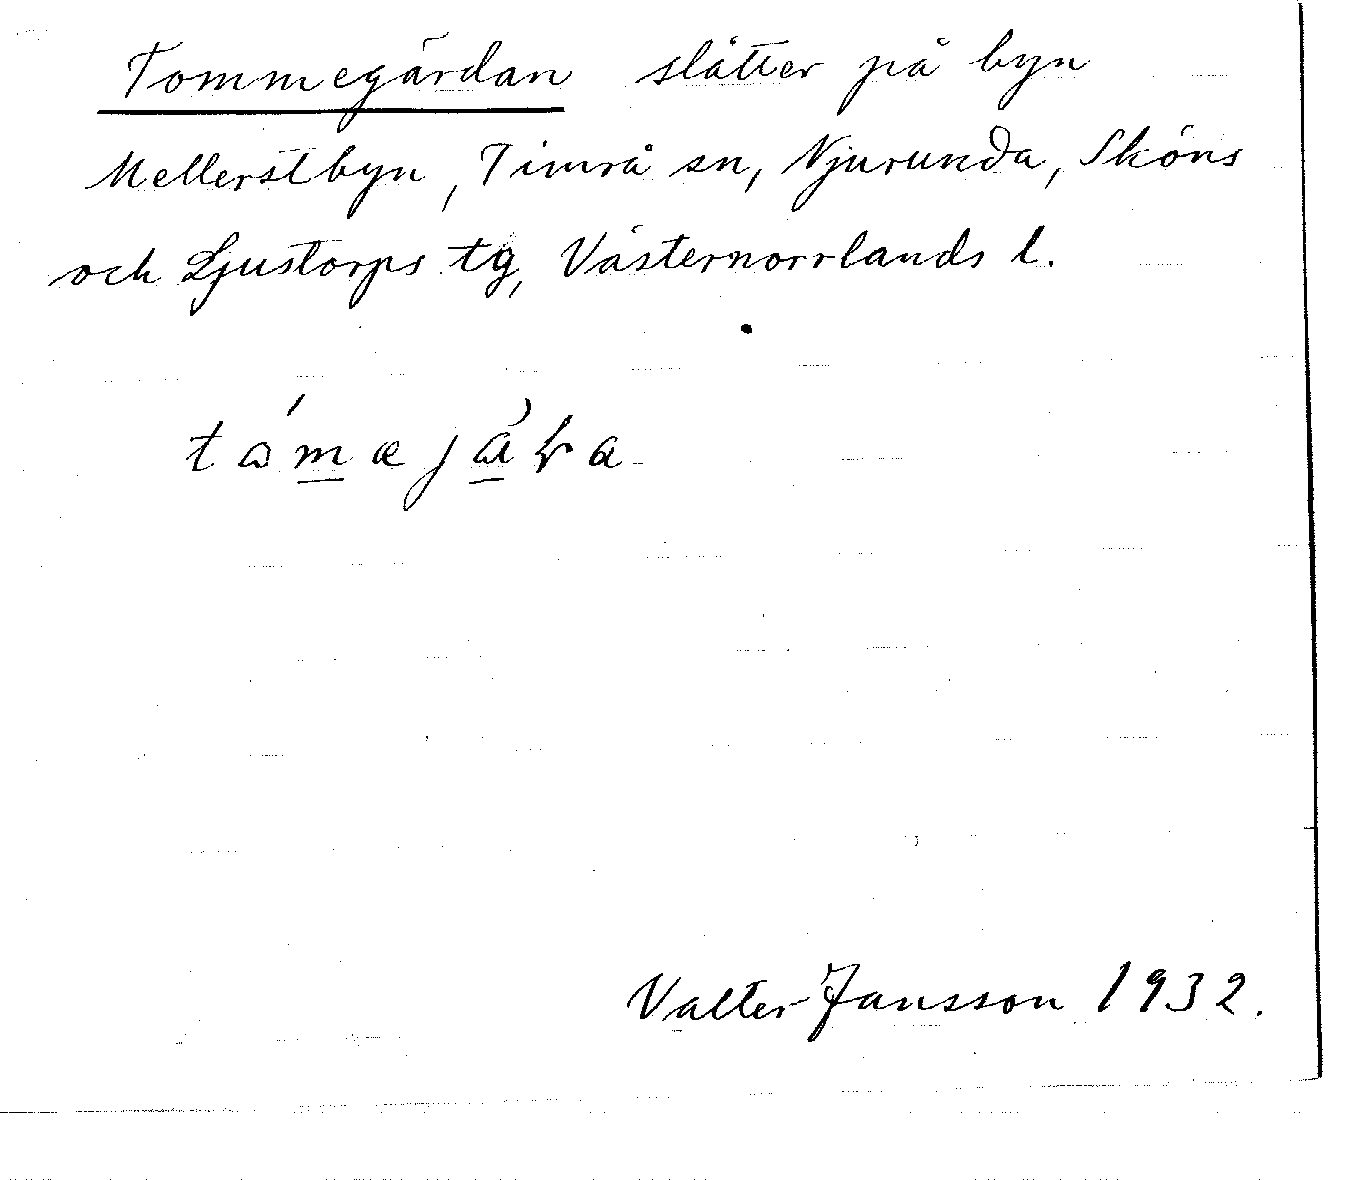 Tommegärdan slåtter på byn
Mellerstbyn, Timrå sn, Njurunda, Sköns
och Ljustorps tg, Västernorrlands l.
Valter Jansson 1932.